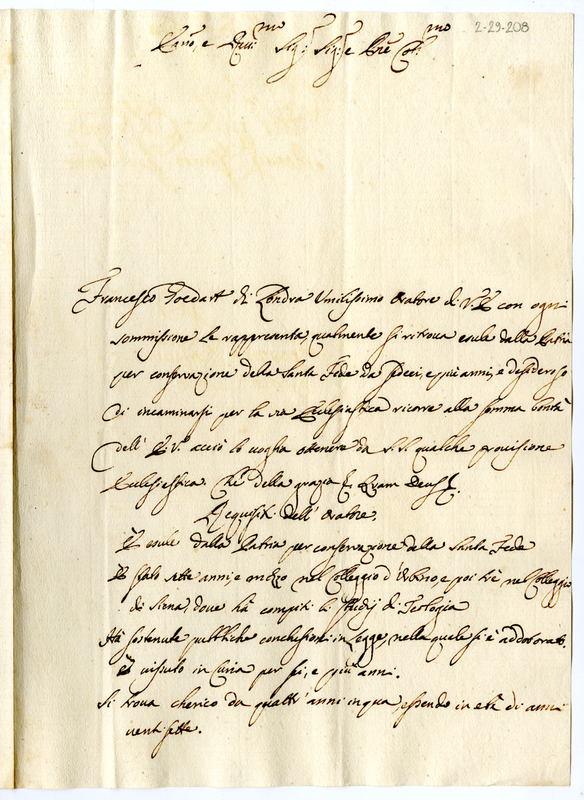 2-29-208
mo mo
e Sig: Sig:e
Francesco Foedart di Londra Umilissimo Oratore di V. E. con ogni
sommissione le rappresenta, qualmente si ritrova esule dalla Patria
per conservazione della Santa Fede da sedeci, e più anni, e desideroso
di incaminarsi per la via Ecclesiastica ricorre alla somma bontà
dell' E. V. acciò lo voglia ottenere da S. S. qualche provisione
Ecclesiastica. Che della grazia &. Quam Deus &.
Requisiti dell' Oratore.
È esule dalla Patria per conservazione della Santa Fede
È stato sette anni, e mezzo nel Colleggio d'Urbino, e poi trè nel Colleggio
di Siena, dove hà compiti li studij di Teologia
Hà sostenute pubbliche conclusioni in Legge, nella quale si è addotorato.
È vissuto in Curia per sei, e più anni.
Si trova cherico da quattr' anni in qua, essendo in età di anni
venti sette.